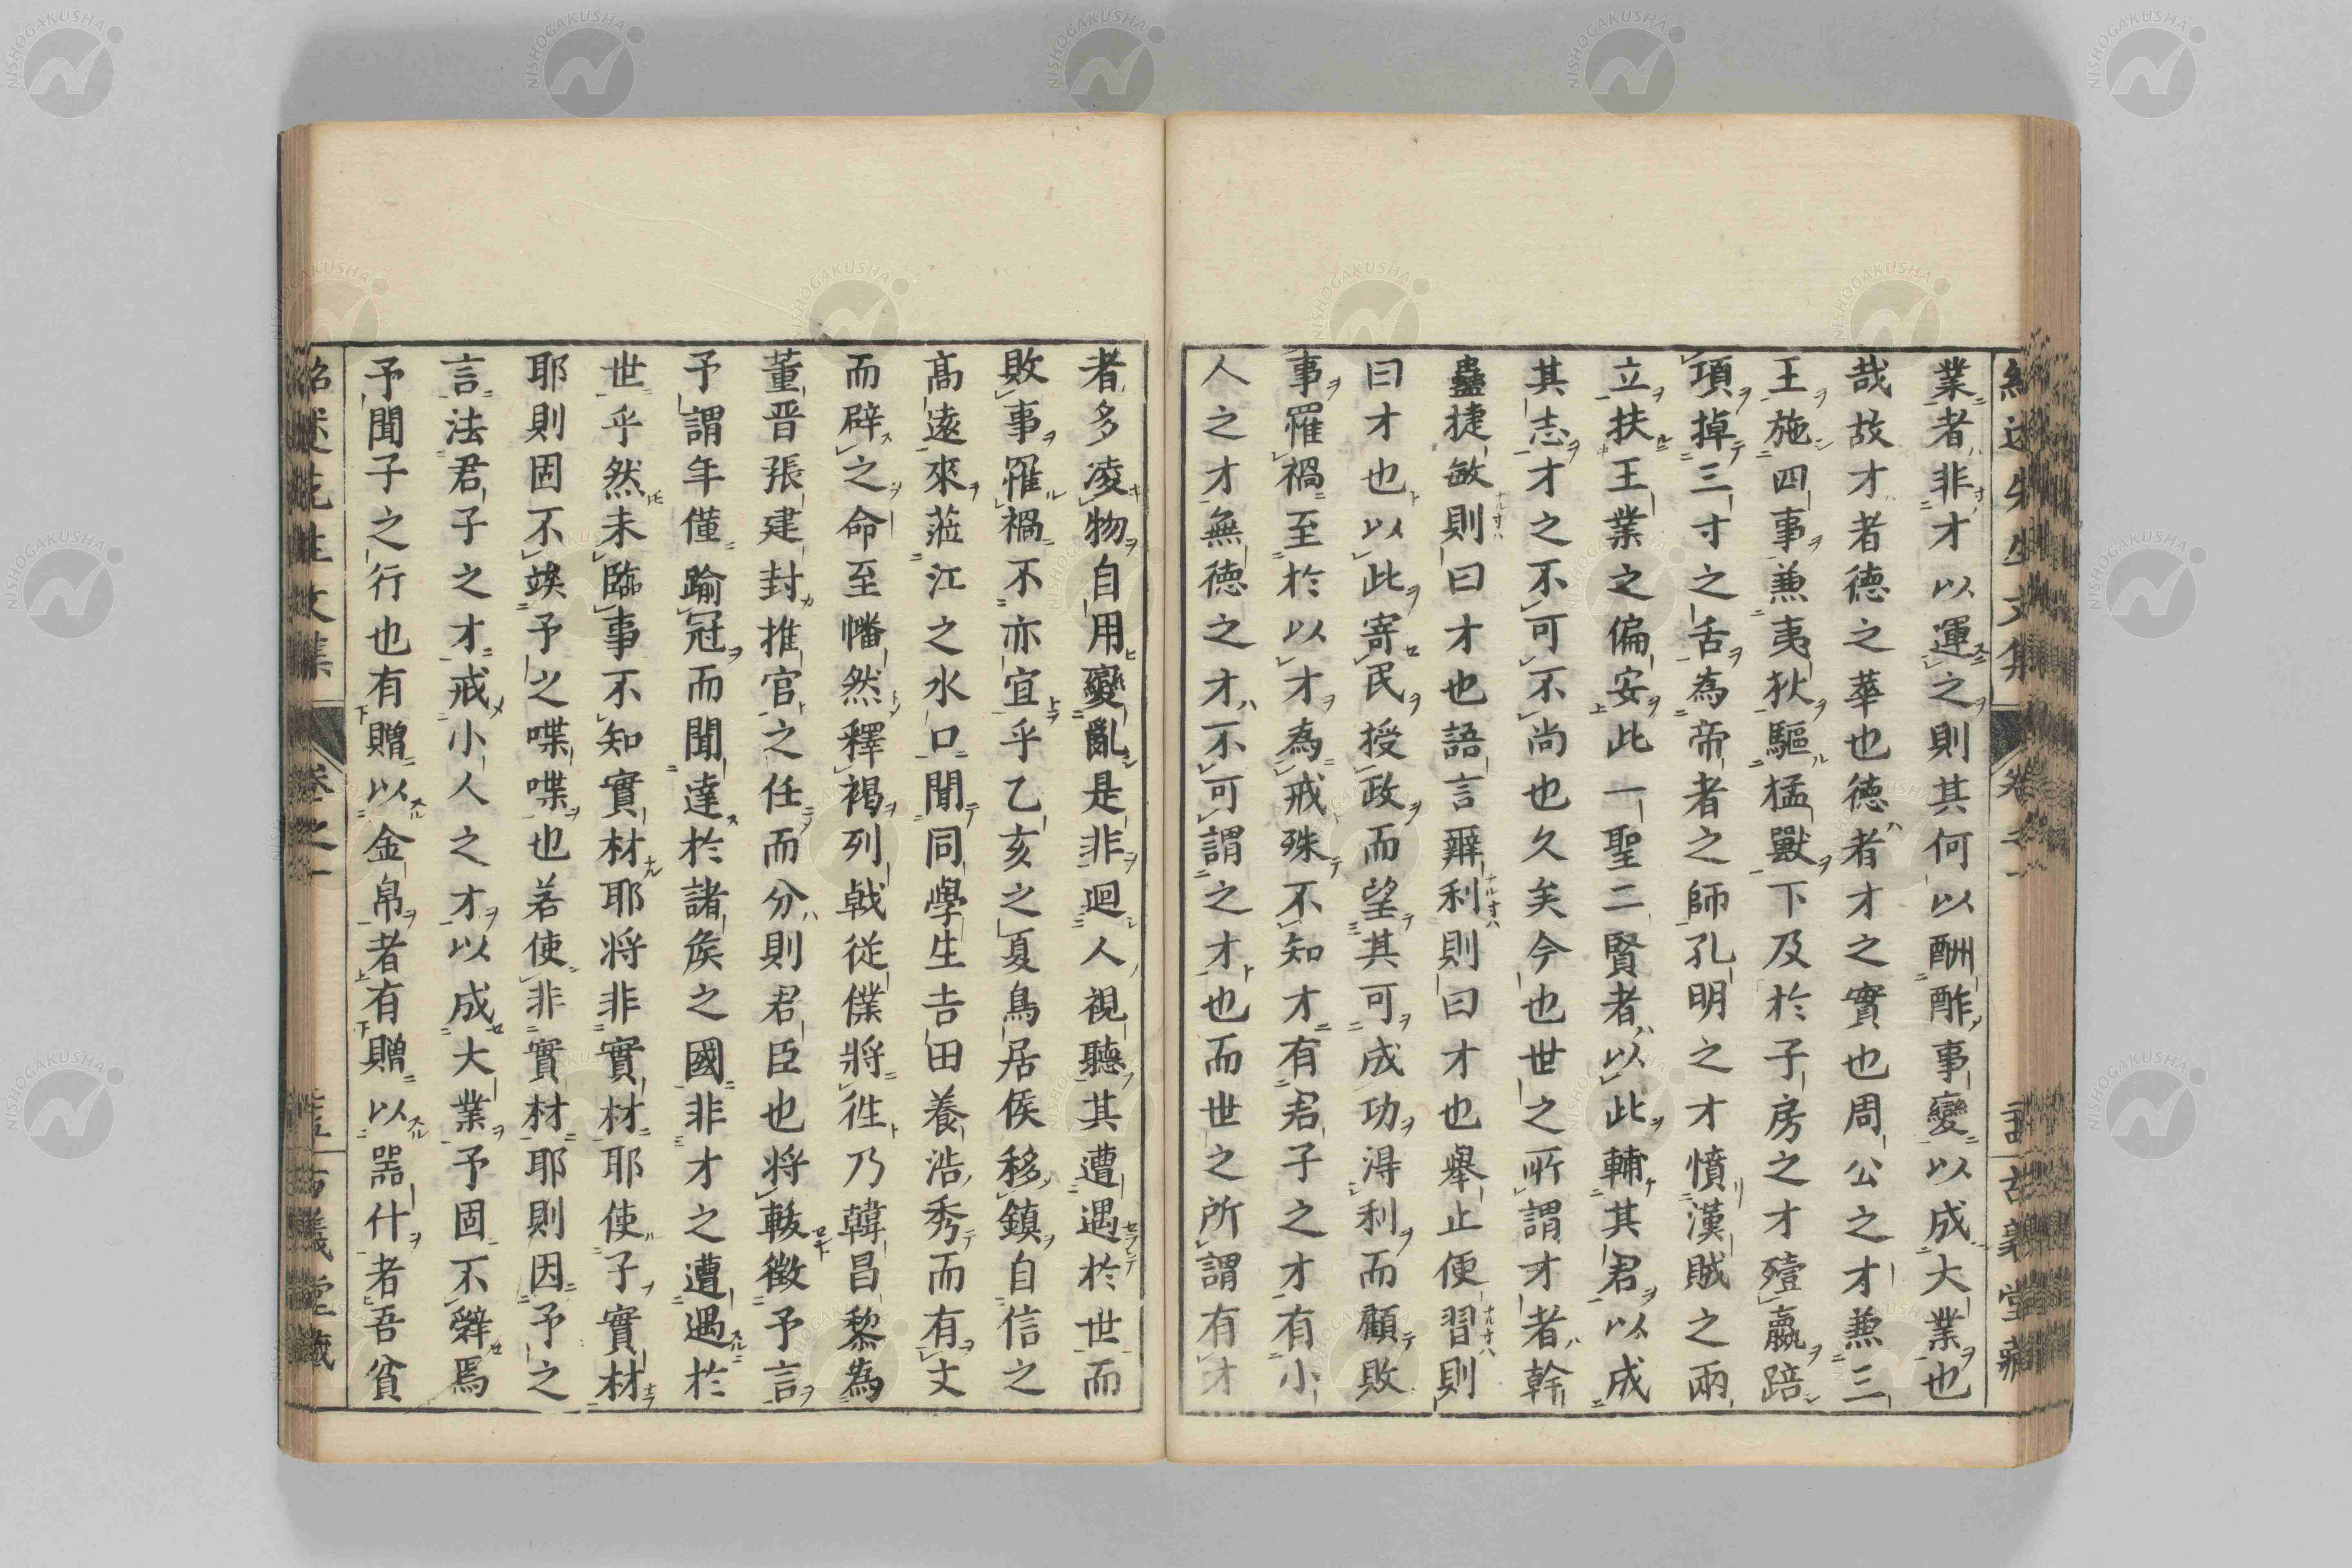 業者非才以運之則其何以酬酢事變以成大業也
哉故才者德之華也德者才之實也周公之才兼三
王施四事兼夷狄驅猛獸下及於子房之才殪嬴踣
項掉三寸之舌為帝者之師孔明之才憤漢賊之兩
立扶王業之偏安此一聖二賢者以此輔其君以成
其志才之不可不尚也久矣今也世之所謂才者幹
蠱捷敏則曰才也語言辭利則曰才也舉止便習則
曰才也以此寄民授政而望其可成功得利而顧敗
事罹禍至於以才為戒殊不知才有君子之才有小
人之才無德之才不可謂之才也而世之所謂有才
者多凌物自用變亂是非迴人視聽其遭遇於世而
敗事罹禍不亦宜乎乙亥之夏鳥居侯移鎮自信之
高遠來蒞江之水口聞同學生吉田養浩秀而有文
而辟之命至幡然釋褐列戟從僕將往乃韓昌黎為
董晋張建封推官之任而分則君臣也將載徵予言
予謂年僅踰冠而聞達於諸侯之國非才之遭遇於
世乎然未臨事不知實材耶將非實材耶使子實材
耶則固不竢予之喋喋也若使非實材耶則因予之
言法君子之才戒小人之才以成大業予固不辭焉
予聞子之行也有贈以金帛者有贈以器什者吾貧
紹述先生文集 卷之一 古義堂藏